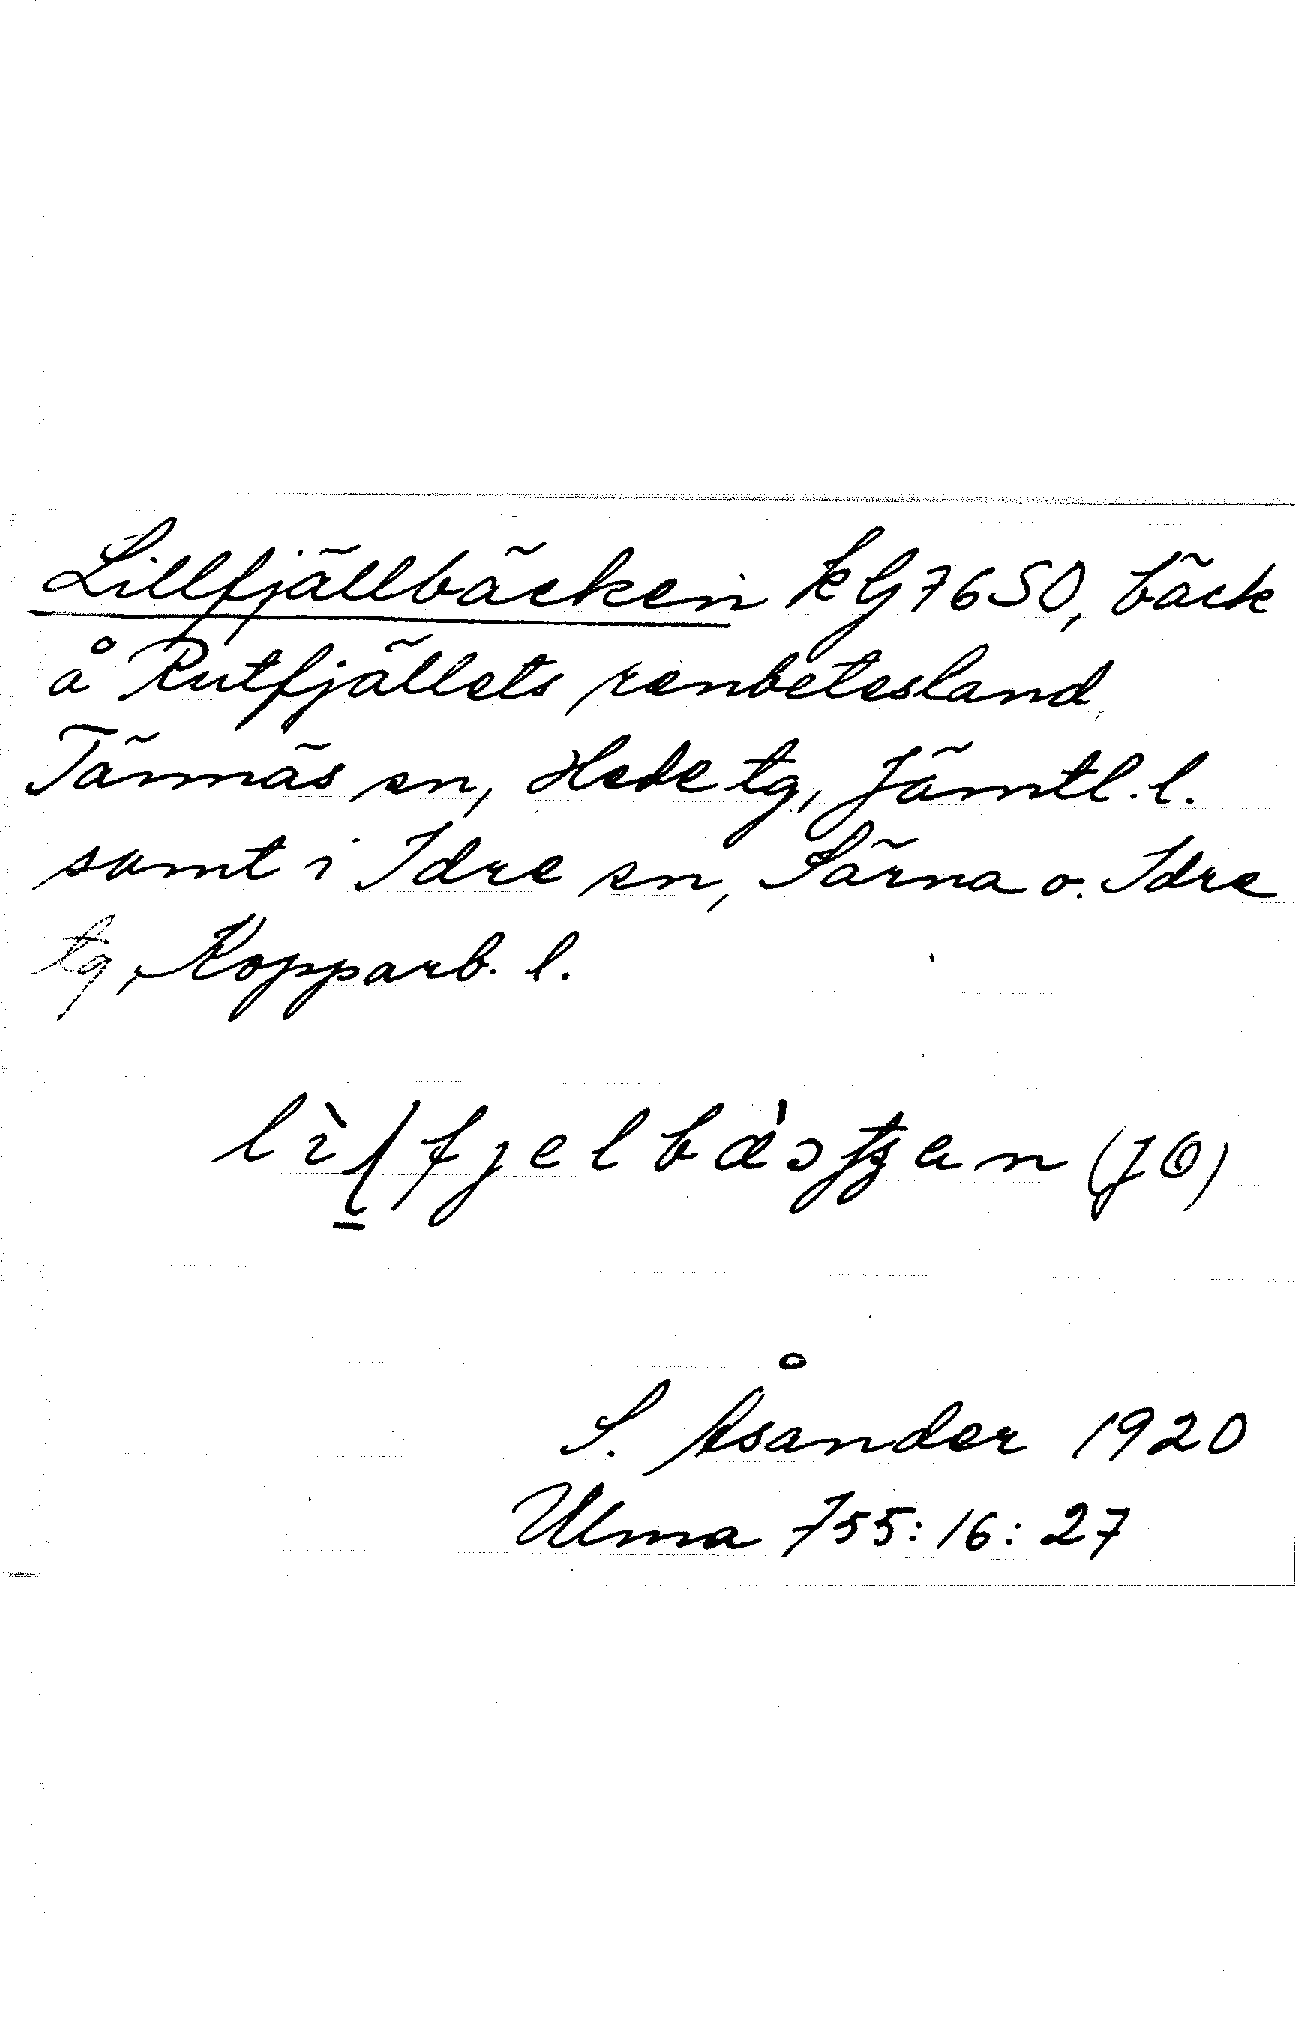 Lillfjällbäcken kG7650, bäck
å Rutfjällets renbetesland
Tännäs sn, Hede tg, Jämtl. l.
samt i Idre sn, Särna o. Idre
tg, Kopparb. l.
(JO)
S. Åsander 1920
Ulma 755:16:27